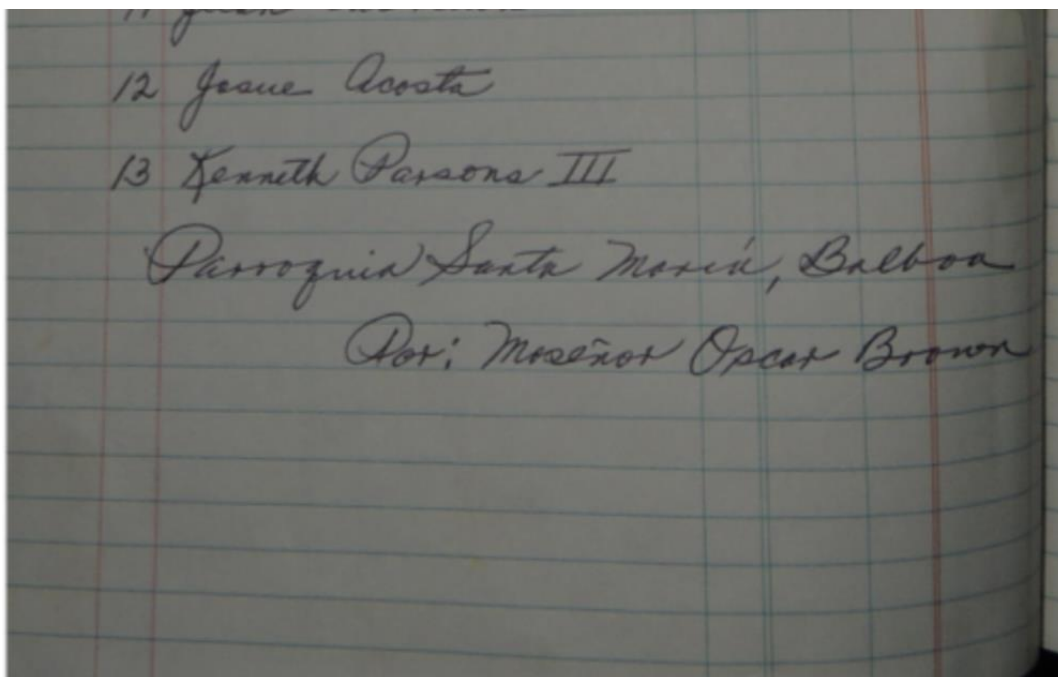 11 Juan
12 Josue Acosta
13 Kenneth Parsons III
Parroquia Santa María, Balboa
Por: Moseñor Oscar Brown